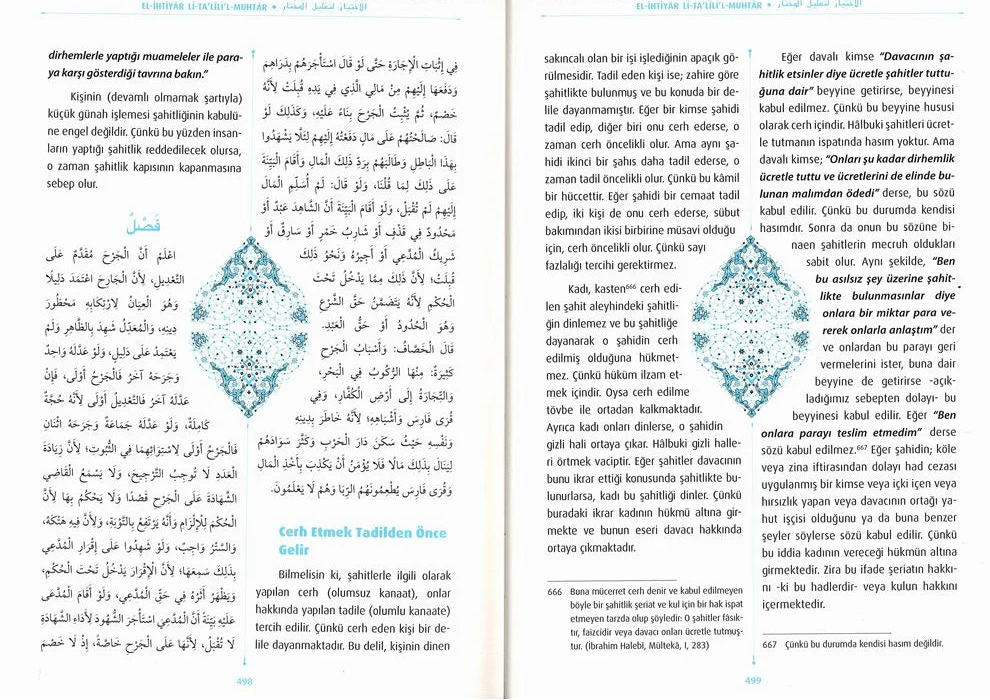 EL-İHTİYÂR Lİ-TA'LÎLİ'L-MUHTÂR • الاختيار لتعليل المختار
dirhemlerle yaptığı muameleler ile para-
ya karşı gösterdiği tavrına bakın."
Kişinin (devamlı olmamak şartıyla)
küçük günah işlemesi şahitliğinin kabulü-
ne engel değildir. Çünkü bu yüzden insan-
ların yaptığı şahitlik reddedilecek olursa,
o zaman şahitlik kapısının kapanmasına
sebep olur.
فَصْلٌ
اعْلَمْ أَنَّ الْجَرْحَ مُقَدَّمٌ عَلَى
التَّعْدِيلِ، لِأَنَّ الْجَارِحَ اعْتَمَدَ دَلِيلًا
وَهُوَ الْعِيَانُ لِارْتِكَابِهِ مَحْظُورَ
دِينِهِ، وَالْمُعَدِّلُ شَهِدَ بِالظَّاهِرِ وَلَمْ
يَعْتَمِدْ عَلَى دَلِيلٍ، وَلَوْ عَدَّلَهُ وَاحِدٌ
وَجَرَحَهُ آخَرُ فَالْجَرْحُ أَوْلَى، فَإِنْ
عَدَّلَهُ آخَرُ فَالتَّعْدِيلُ أَوْلَى لِأَنَّهُ حُجَّةٌ
كَامِلَةٌ، وَلَوْ عَدَّلَهُ جَمَاعَةٌ وَجَرَحَهُ اثْنَانِ
فَالْجَرْحُ أَوْلَى لِاسْتِوَائِهِمَا فِي الثُّبُوتِ؛ لِأَنَّ زِيَادَةَ
الْعَدَدِ لَا تُوجِبُ التَّرْجِيحَ، وَلَا يَسْمَعُ الْقَاضِي
الشَّهَادَةَ عَلَى الْجَرْحِ قَصْدًا وَلَا يَحْكُمُ بِهَا لِأَنَّ
الْحُكْمَ لِلْإِلْزَامِ وَأَنَّهُ يَرْتَفِعُ بِالتَّوْبَةِ، وَلِأَنَّ فِيهِ هَتْكَهُ،
وَالسَّتْرُ وَاجِبٌ، وَلَوْ شَهِدُوا عَلَى إِقْرَارِ الْمُدَّعِي
بِذَلِكَ سَمِعَهَا؛ لِأَنَّ الْإِقْرَارَ يَدْخُلُ تَحْتَ الْحُكْمِ،
وَيَظْهَرُ أَثَرُهُ فِي حَقِّ الْمُدَّعِي، وَلَوْ أَقَامَ الْمُدَّعَى
عَلَيْهِ بَيِّنَةً أَنَّ الْمُدَّعِيَ اسْتَأْجَرَ الشُّهُودَ لِأَدَاءِ الشَّهَادَةِ
لَا تُقْبَلُ، لِأَنَّهَا عَلَى الْجَرْحِ خَاصَّةً، إِذْ لَا خَصْمَ
فِي إِثْبَاتِ الْإِجَارَةِ حَتَّى لَوْ قَالَ اسْتَأْجَرَهُمْ بِدَرَاهِمَ
وَدَفَعَهَا إِلَيْهِمْ مِنْ مَالِي الَّذِي فِي يَدِهِ قُبِلَتْ لِأَنَّهُ
خَصْمٌ، ثُمَّ يَثْبُتُ الْجَرْحُ بِنَاءً عَلَيْهِ، وَكَذَلِكَ لَوْ
قَالَ: صَالَحْتُهُمْ عَلَى مَالٍ دَفَعْتُهُ إِلَيْهِمْ لِئَلَّا يَشْهَدُوا
بِهَذَا الْبَاطِلِ وَطَالَبَهُمْ بِرَدِّ ذَلِكَ الْمَالِ وَأَقَامَ الْبَيِّنَةَ
عَلَى ذَلِكَ لِمَا قُلْنَا، وَلَوْ قَالَ: لَمْ أُسَلِّمِ الْمَالَ
إِلَيْهِمْ لَمْ تُقْبَلْ، وَلَوْ أَقَامَ الْبَيِّنَةَ أَنَّ الشَّاهِدَ عَبْدٌ أَوْ
مَحْدُودٌ فِي قَذْفٍ أَوْ شَارِبُ خَمْرٍ أَوْ سَارِقٌ أَوْ
شَرِيكُ الْمُدَّعِي أَوْ أَجِيرُهُ وَنَحْوُ ذَلِكَ
قُبِلَتْ؛ لِأَنَّ ذَلِكَ مِمَّا يَدْخُلُ تَحْتَ
الْحُكْمِ لِأَنَّهُ يَتَضَمَّنُ حَقَّ الشَّرْعِ
وَهُوَ الْحُدُودُ أَوْ حَقَّ الْعَبْدِ.
قَالَ الْخَصَّافُ: وَأَسْبَابُ الْجَرْحِ
كَثِيرَةٌ: مِنْهَا الرُّكُوبُ فِي الْبَحْرِ،
وَالتِّجَارَةُ إِلَى أَرْضِ الْكُفَّارِ، وَفِي
قُرَى فَارِسَ وَأَشْبَاهِهِ؛ لِأَنَّهُ خَاطَرَ بِدِينِهِ
وَنَفْسِهِ حَيْثُ سَكَنَ دَارَ الْحَرْبِ وَكَثَّرَ سَوَادَهُمْ
لِيَنَالَ بِذَلِكَ مَالًا فَلَا يُؤْمَنُ أَنْ يَكْذِبَ بِأَخْذِ الْمَالِ
وَقُرَى فَارِسَ يُطْعِمُونَهُمُ الرِّبَا وَهُمْ لَا يَعْلَمُونَ.
Cerh Etmek Tadilden Önce
Gelir
Bilmelisin ki, şahitlerle ilgili olarak
yapılan cerh (olumsuz kanaat), onlar
hakkında yapılan tadile (olumlu kanaate)
tercih edilir. Çünkü cerh eden kişi bir de-
lile dayanmaktadır. Bu delil, kişinin dinen
498
EL-İHTİYÂR Lİ-TA'LÎLİ'L-MUHTÂR • الاختيار لتعليل المختار
sakıncalı olan bir işi işlediğinin apaçık gö-
rülmesidir. Tadil eden kişi ise; zahire göre
şahitlikte bulunmuş ve bu konuda bir de-
lile dayanmamıştır. Eğer bir kimse şahidi
tadil edip, diğer biri onu cerh ederse, o
zaman cerh öncelikli olur. Ama aynı şa-
hidi ikinci bir şahıs daha tadil ederse, o
zaman tadil öncelikli olur. Çünkü bu kâmil
bir hüccettir. Eğer şahidi bir cemaat tadil
edip, iki kişi de onu cerh ederse, sübut
bakımından ikisi birbirine müsavi olduğu
için, cerh öncelikli olur. Çünkü sayı
fazlalığı tercihi gerektirmez.
Kadı, kasten666 cerh edi-
len şahit aleyhindeki şahitli-
ğin dinlemez ve bu şahitliğe
dayanarak o şahidin cerh
edilmiş olduğuna hükmet-
mez. Çünkü hüküm ilzam et-
mek içindir. Oysa cerh edilme
tövbe ile ortadan kalkmaktadır.
Ayrıca kadı onları dinlerse, o şahidin
gizli hali ortaya çıkar. Hâlbuki gizli halle-
ri örtmek vaciptir. Eğer şahitler davacının
bunu ikrar ettiği konusunda şahitlikte bu-
lunurlarsa, kadı bu şahitliği dinler. Çünkü
buradaki ikrar kadının hükmü altına gir-
mekte ve bunun eseri davacı hakkında
ortaya çıkmaktadır.
666 Buna mücerret cerh denir ve kabul edilmeyen
böyle bir şahitlik şeriat ve kul için bir hak ispat
etmeyen tarzda olup şöyledir: O şahitler fâsık-
tır, faizcidir veya davacı onları ücretle tutmuş-
tur. (İbrahim Halebî, Mültekâ, I, 283)
Eğer davalı kimse "Davacının şa-
hitlik etsinler diye ücretle şahitler tuttu-
ğuna dair" beyyine getirirse, beyyinesi
kabul edilmez. Çünkü beyyine hususi
olarak cerh içindir. Hâlbuki şahitleri ücret-
le tutmanın ispatında hasım yoktur. Ama
davalı kimse; "Onları şu kadar dirhemlik
ücretle tuttu ve ücretlerini de elinde bu-
lunan malımdan ödedi" derse, bu sözü
kabul edilir. Çünkü bu durumda kendisi
hasımdır. Sonra da onun bu sözüne bi-
naen şahitlerin mecruh oldukları
sabit olur. Aynı şekilde, "Ben
bu asılsız şey üzerine şahit-
likte bulunmasınlar diye
onlara bir miktar para ve-
rerek onlarla anlaştım" der
ve onlardan bu parayı geri
vermelerini ister, buna dair
beyyine de getirirse -açık-
ladığımız sebepten dolayı- bu
beyyinesi kabul edilir. Eğer "Ben
onlara parayı teslim etmedim" derse
sözü kabul edilmez.667 Eğer şahidin; köle
veya zina iftirasından dolayı had cezası
uygulanmış bir kimse veya içki içen veya
hırsızlık yapan veya davacının ortağı ya-
hut işçisi olduğunu ya da buna benzer
şeyler söylerse sözü kabul edilir. Çünkü
bu iddia kadının vereceği hükmün altına
girmektedir. Zira bu ifade şeriatın hakkı-
nı -ki bu hadlerdir- veya kulun hakkını
içermektedir.
667 Çünkü bu durumda kendisi hasım değildir.
499